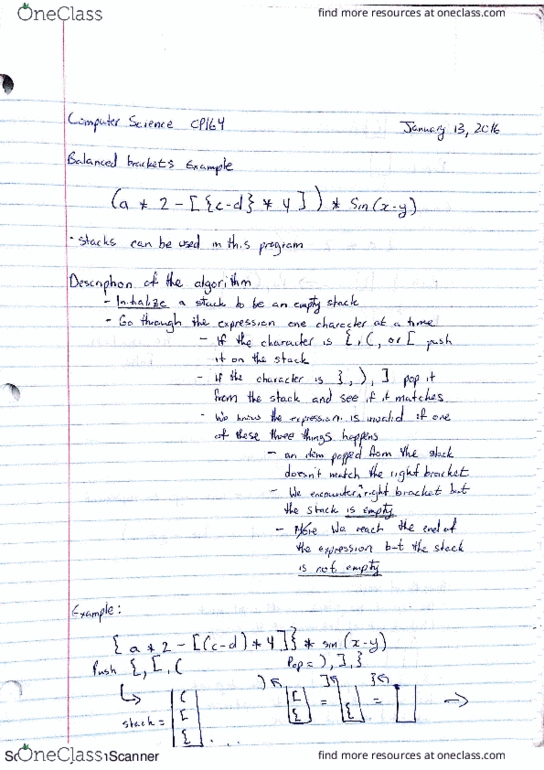 OneClass
find more resources at oneclass.com
Computer Science CP164 January 13, 2016
Balanced brackets Example
(a * 2 - [{c-d} * 4]) * sin(x-y)
· stacks can be used in this program
Description of the algorithm
- Initialize a stack to be an empty stack
- Go through the expression one character at a time
- if the character is {, (, or [ push
it on the stack
- if the character is }, ), ] pop it
from the stack and see if it matches
- We know the expression is invalid if one
of these three things happens
- an item popped from the stack
doesn't match the right bracket
- We encounter right bracket but
the stack is empty
- We reach the end of
the expression but the stack
is not empty
Example:
{ a * 2 - [(c-d) * 4]} * sin(x-y)
Push {, [, ( Pop = ), ], }
) ] }
stack = ( [ { [ { = { = →
...
Scanner
OneClass
find more resources at oneclass.com